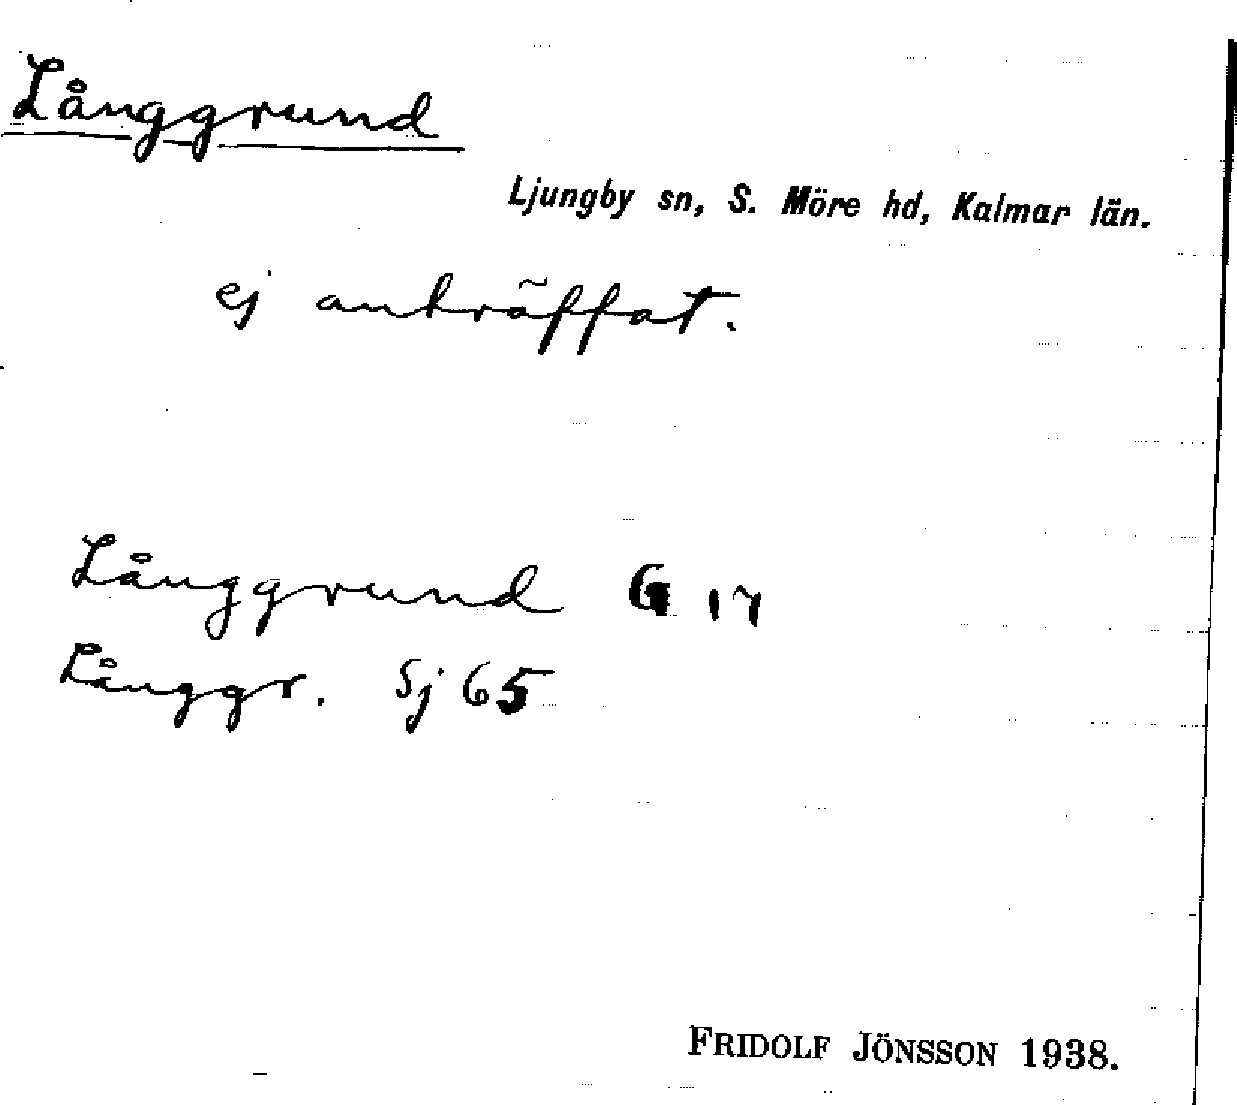 Långgrund
Ljungby sn, S. Möre hd, Kalmar län.
ej anträffat.
Långgrund G 17
Långgr. Sj 65
FRIDOLF JÖNSSON 1938.